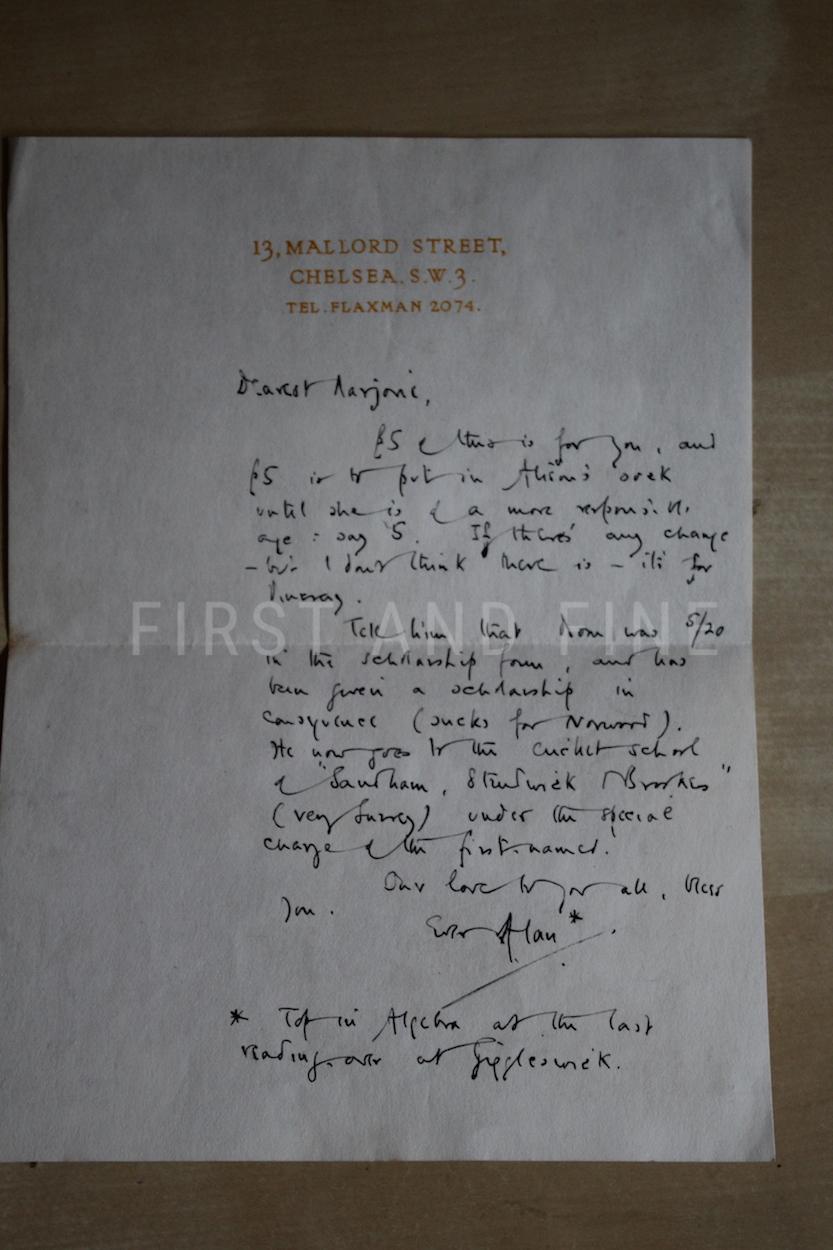 13, MALLORD STREET,
CHELSEA. S.W.3.
TEL. FLAXMAN 2074.
Dearest Marjorie,
£5 of this is for you, and
£5 is to put in Alison's sock
until she is of a more responsible
age : say 5. If there's any change
- but I don't think there is - it's for
FIRST AND FINE
Tell him that Moon was 5/20
in the scholarship form, and has
been given a scholarship in
consequence (sucks for Norwood).
He now goes to the cricket school
of "Sandham, Strudwick & Brookes"
(very Surrey) under the special
charge of the first-named.
Our love to you all, bless
you.
Ever Alan*
* Top in Algebra at the last
reading-over at Giggleswick.